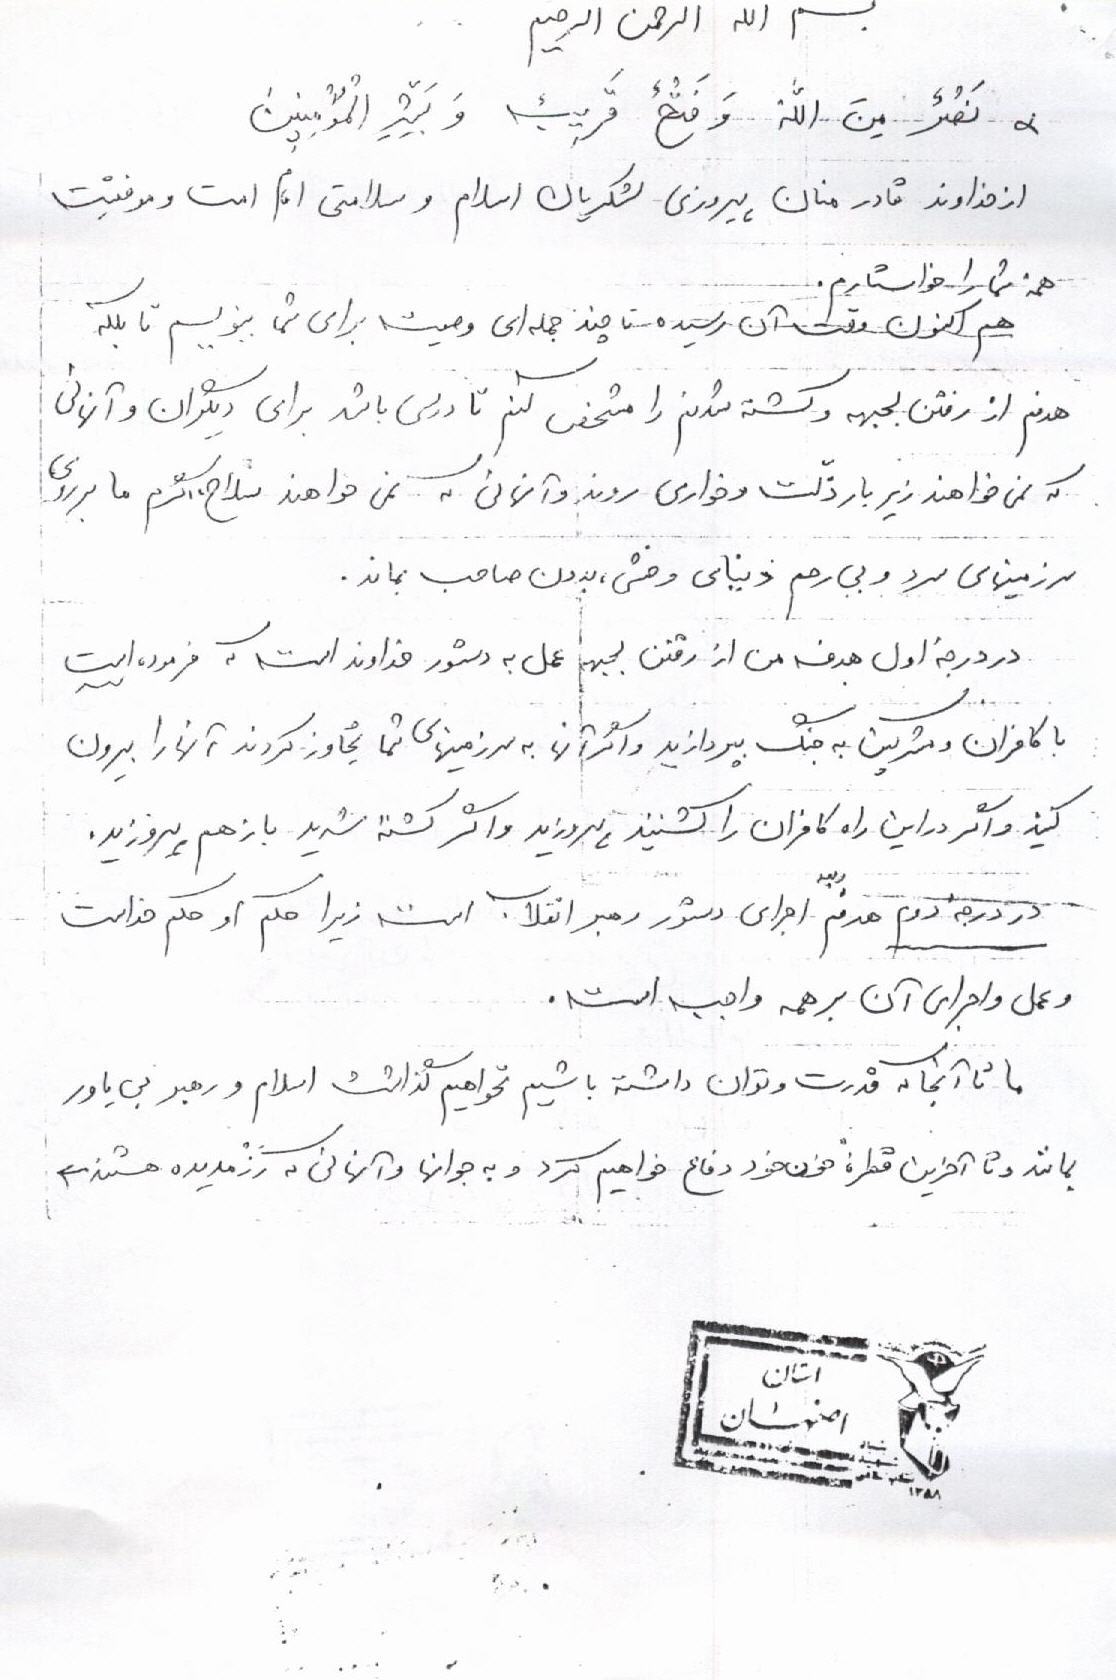 بسم الله الرحمن الرحیم
نَصْرٌ مِنَ اللّهِ وَ فَتْحٌ قَریبٌ وَ بَشِّرِ الْمُؤْمِنینَ
از خداوند قادر منان پیروزی لشکریان اسلام و سلامتی امام امت و موفقیت
همهٔ شما را خواستارم.
هم اکنون وقت آن رسیده تا چند جمله‌ای وصیت برای شما بنویسم تا بلکه
هدفم از رفتن بجبهه و کشته شدنم را مشخص کنم تا درسی باشد برای دیگران و آنهائی
که نمی‌خواهند زیر بار ذلّت و خواری روند و آنهائی که نمی‌خواهند سلاح گرم ما بر روی
سرزمینهای سرد و بی رحم و خشن، بدون صاحب بماند.
در درجهٔ اول هدف من از رفتن بجبهه عمل به دستور خداوند است که فرموده است
با کافران و مشرکین به جنگ بپردازید و اگر آنها به سرزمینهای شما تجاوز کردند آنها را بیرون
کنید و اگر در این راه کافران را کشتید پیروزید و اگر کشته شدید باز هم پیروزید.
در درجهٔ دوم هدفم اجرای دستور رهبر انقلاب است زیرا حکم او حکم خداست
و عمل و اجرای آن بر همه واجب است.
ما تا آنجا که قدرت و توان داشته باشیم نخواهیم گذاشت اسلام و رهبر بی یاور
بمانند و تا آخرین قطرهٔ خون خود دفاع خواهیم کرد و به جوانها و آنهائی که رزمدیده هستند
استان
اصفهان
۱۳۵۸